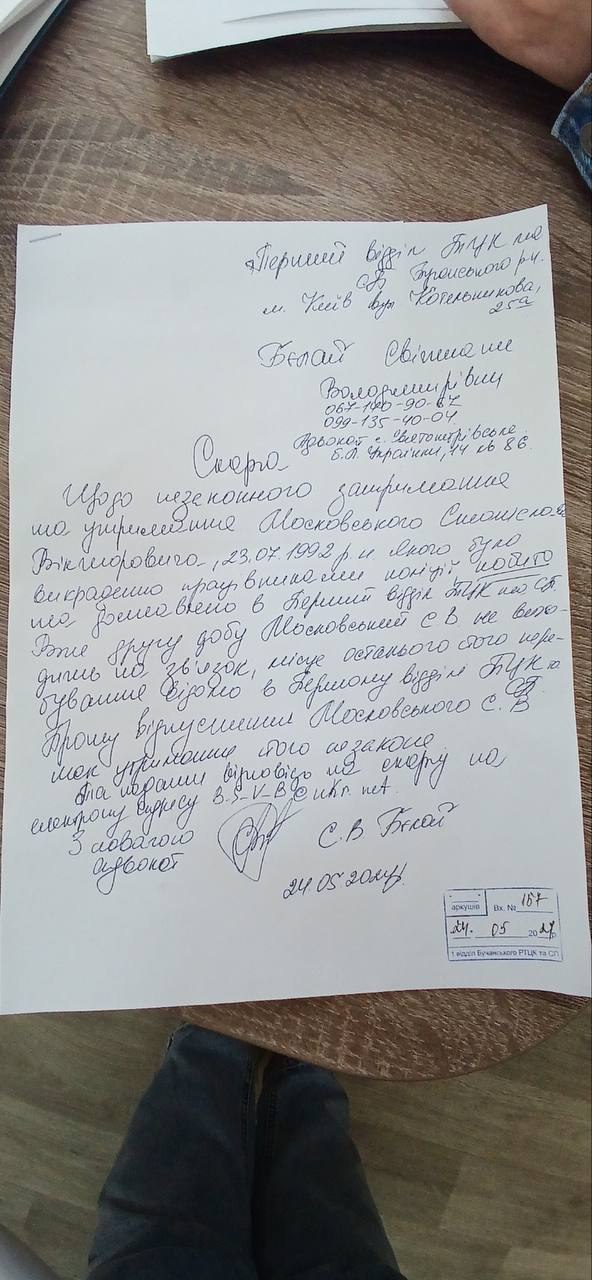 Перший відділ ТЦК та
СП Бучанського р-н.
м. Київ вул Котельникова,
25а
Бєлай Світлани
Володимирівни
067-140-90-67
099-135-40-04
Адвокат с. Святопетрівське
Б.Л. Українки, 14 кв 86.
Скарга
Щодо незаконного затримання
та утримання Московського Станіслава
Вікторовича, 23.07.1992 р.н якого було
викрадено працівниками поліції, побито
та доставлено в Перший відділ ТЦК та СП.
Вже другу добу Московський С В не вихо-
дить на зв'язок, місце останього його пере-
бування відомо в Першому відділі ТЦК та
СП.
Прошу відпустити Московського С. В
так утримання його незаконе
Та надати відповідь на скаргу на
електрону адресу B.S-V-B@ukr.net.
З повагою
адвокат
С.В Бєлай
24.05.2024р.
аркушів Вх. № 167
24. 05 2024р
1 відділ Бучанського РТЦК та СП